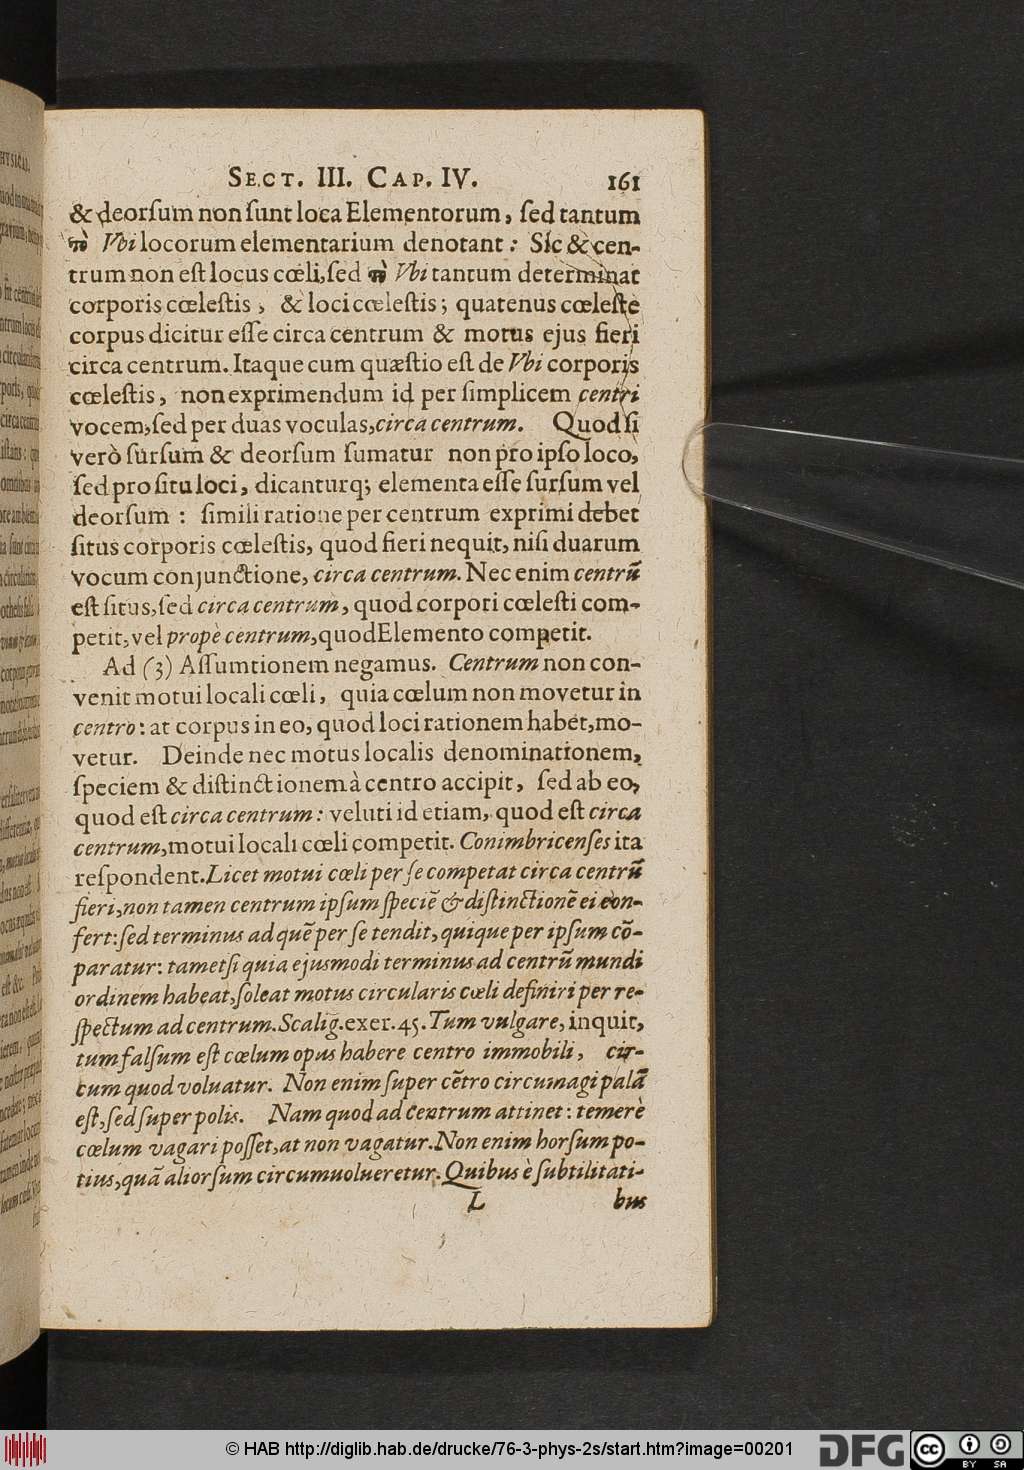 SECT. III. CAP. IV. 161
& deorſum non ſunt loca Elementorum, ſed tantum
τὸ Vbi locorum elementarium denotant: Sic & cen-
trum non eſt locus cœli, ſed τὸ Vbi tantum determinat
corporis cœleſtis, & loci cœleſtis; quatenus cœleſte
corpus dicitur eſſe circa centrum & motus ejus fieri
circa centrum. Itaque cum quæſtio eſt de Vbi corporis
cœleſtis, non exprimendum id per ſimplicem centri
vocem, ſed per duas voculas, circa centrum. Quod ſi
verò ſurſum & deorſum ſumatur non pro ipſo loco,
ſed pro ſitu loci, dicanturq; elementa eſſe ſurſum vel
deorſum: ſimili ratione per centrum exprimi debet
ſitus corporis cœleſtis, quod fieri nequit, niſi duarum
vocum conjunctione, circa centrum. Nec enim centrũ
eſt ſitus, ſed circa centrum, quod corpori cœleſti com-
petit, vel propè centrum, quod Elemento competit.
Ad (3) Aſſumtionem negamus. Centrum non con-
venit motui locali cœli, quia cœlum non movetur in
centro: at corpus in eo, quod loci rationem habet, mo-
vetur. Deinde nec motus localis denominationem,
ſpeciem & diſtinctionem à centro accipit, ſed ab eo,
quod eſt circa centrum: veluti id etiam, quod eſt circa
centrum, motui locali cœli competit. Conimbricenſes ita
reſpondent. Licet motui cœli per ſe competat circa centrũ
fieri, non tamen centrum ipſum ſpeciẽ & diſtinctionẽ ei con-
fert: ſed terminus ad quẽ per ſe tendit, quique per ipſum cõ-
paratur: tametſi quia ejusmodi terminus ad centrũ mundi
ordinem habeat, ſoleat motus circularis cœli definiri per re-
ſpectum ad centrum. Scalig. exer. 45. Tum vulgare, inquit,
tum falſum eſt cœlum opus habere centro immobili, cir-
cum quod voluatur. Non enim ſuper cẽtro circumagi palã
eſt, ſed ſuper polis. Nam quod ad Centrum attinet: temerè
cœlum vagari poſſet, at non vagatur. Non enim horſum po-
tius, quã aliorſum circumuolueretur. Quibus è ſubtilitati-
L bus
© HAB http://diglib.hab.de/drucke/76-3-phys-2s/start.htm?image=00201
DFG
cc BY SA